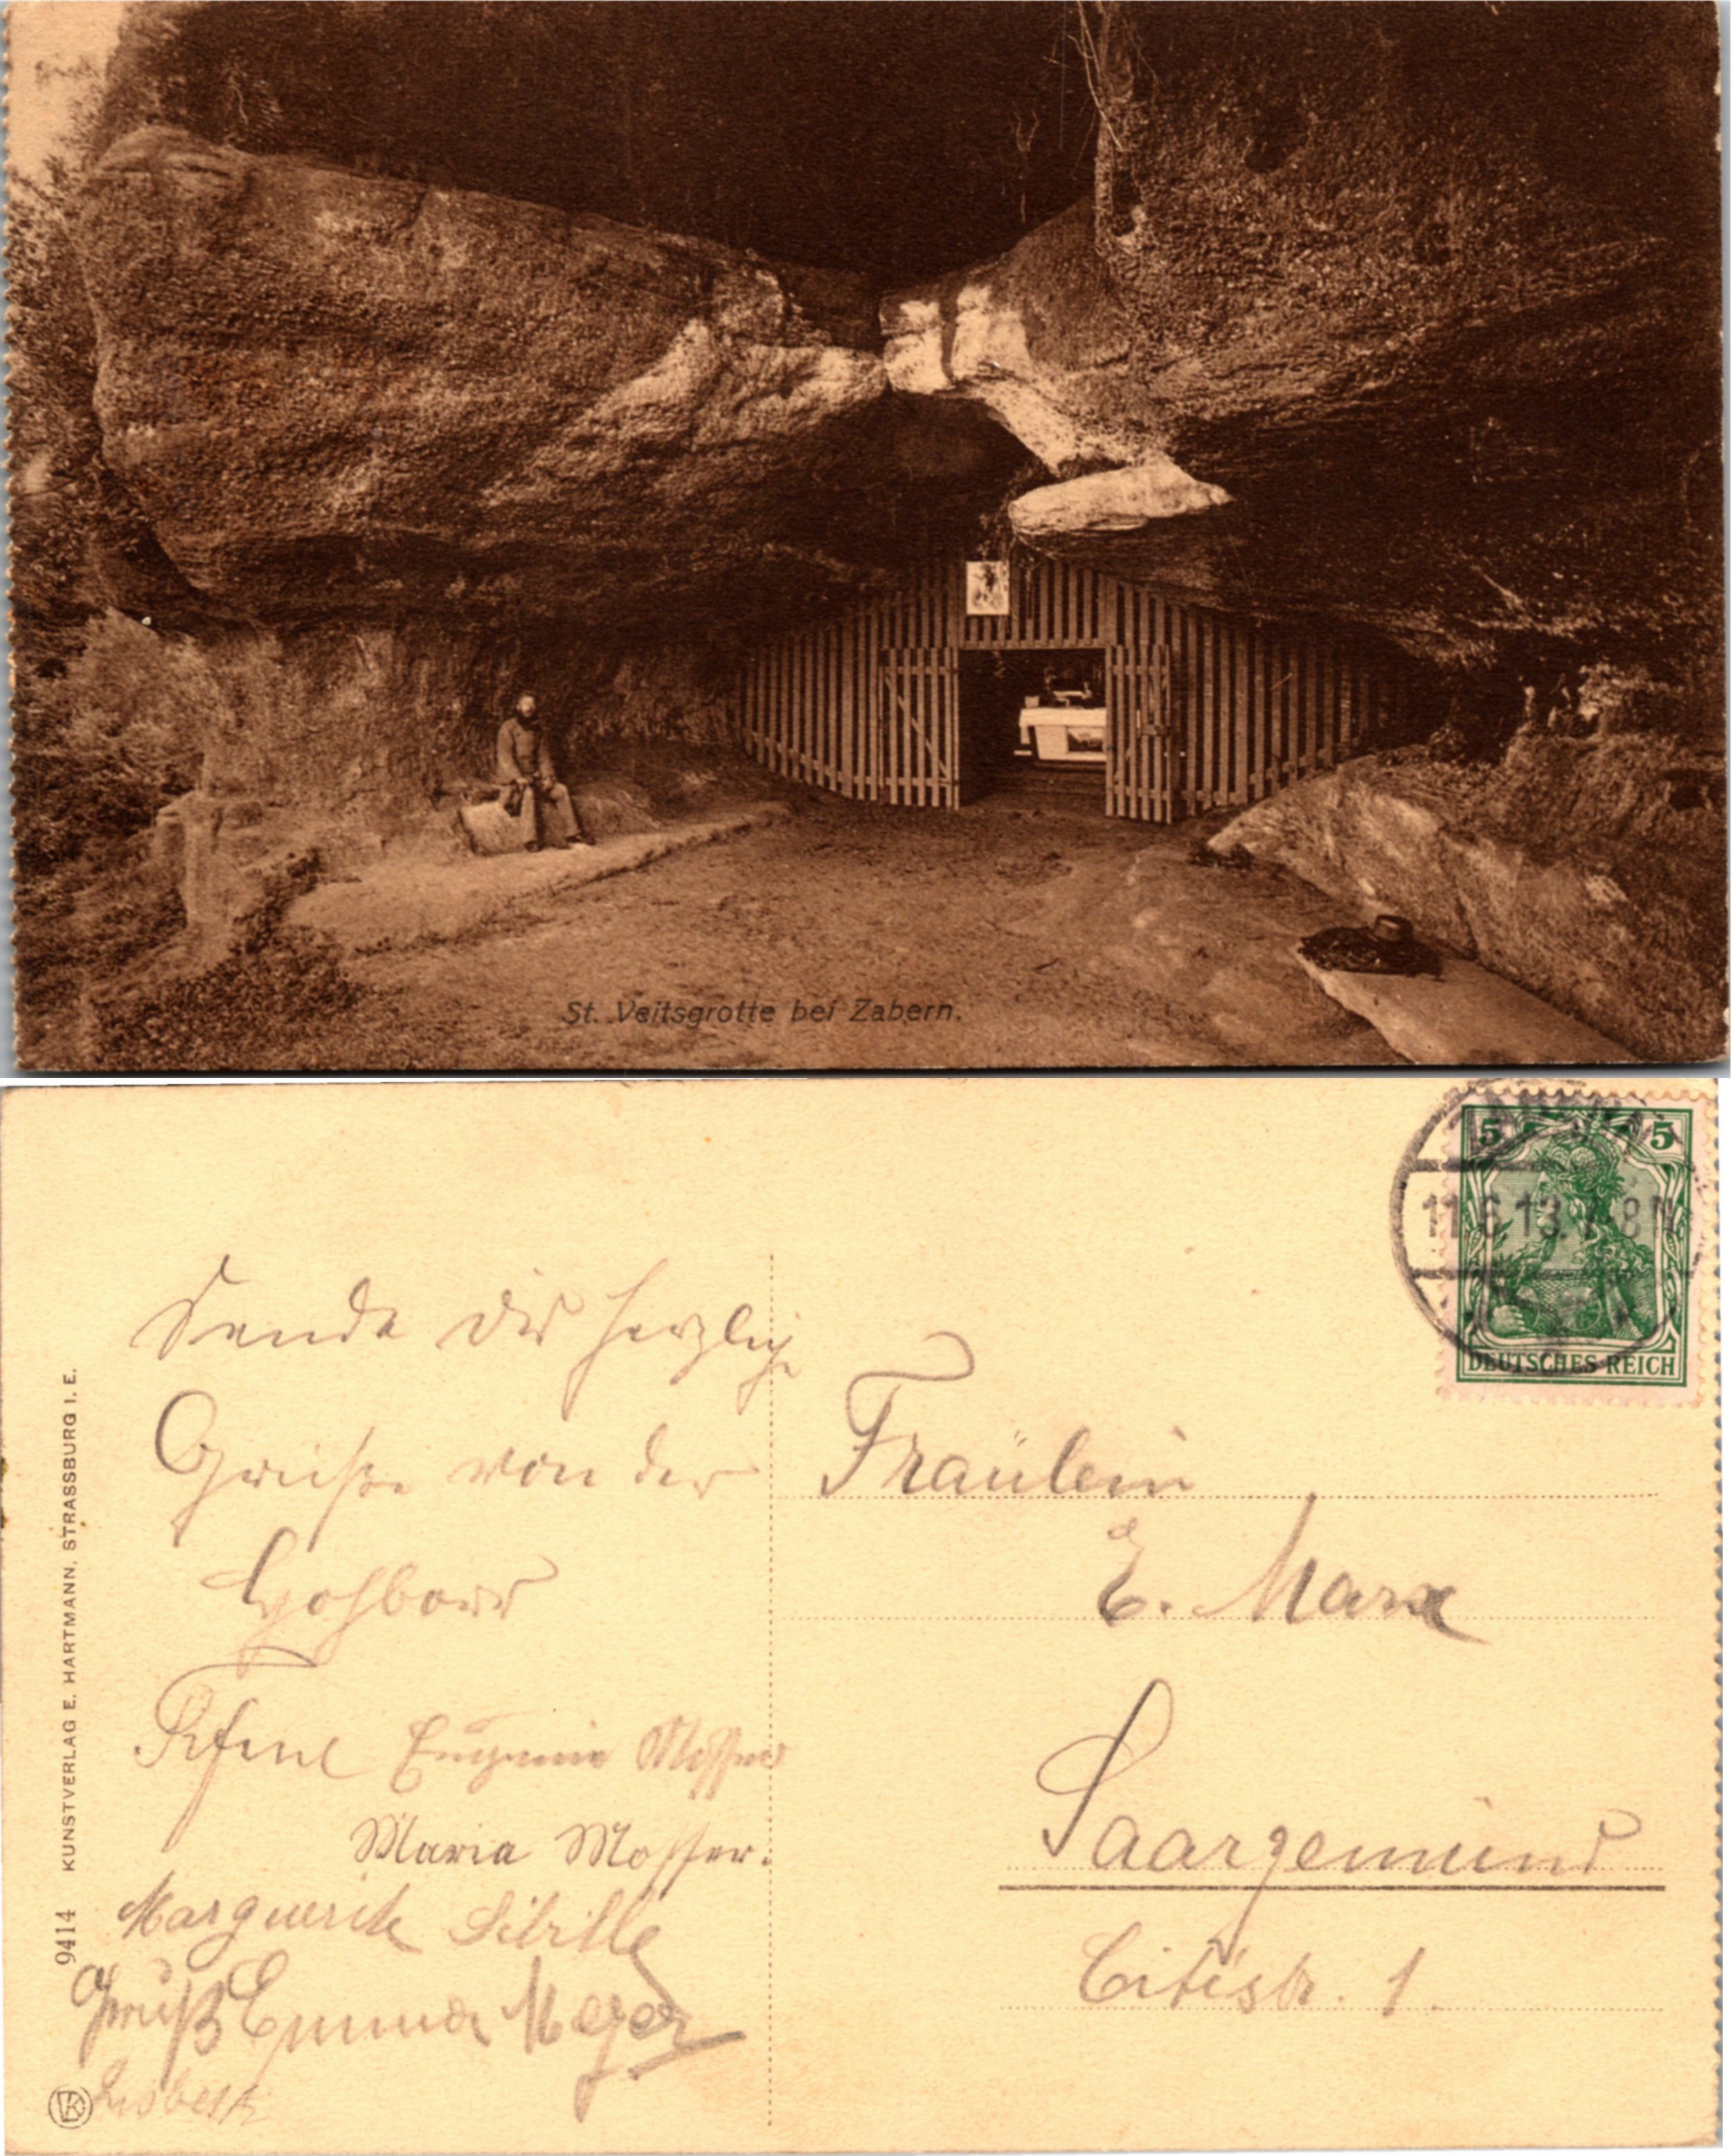 St. Veitsgrotte bei Zabern.
5 5
11.6.13. 7-8N
DEUTSCHES REICH
Sende dir herzlige
Grüße von der
Hohbarr
Eugenie Mosser
Maria Mosser.
Marguerite Sibille
Gruß Emma Meyer
Lisbeth
Fräulein
E. Marx
Saargemünd
Citéstr. 1.
9414 KUNSTVERLAG E. HARTMANN, STRASSBURG I. E.